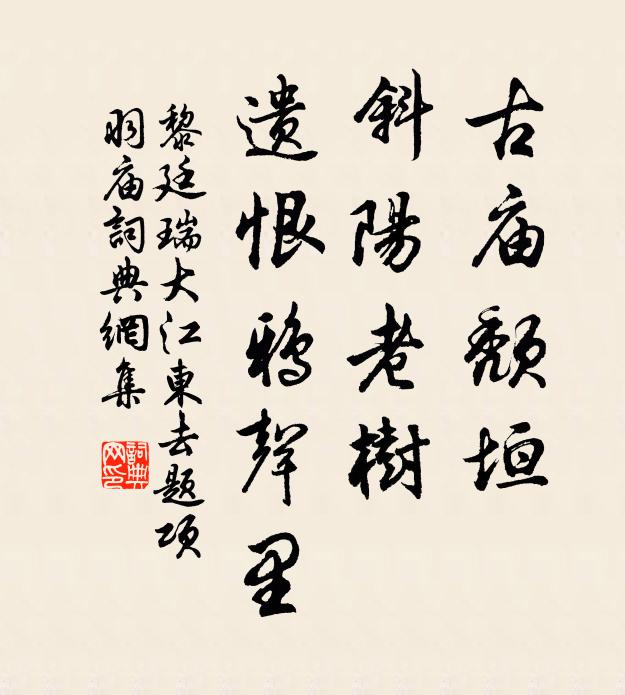 古庙颓垣
斜陽老樹
遗恨鴉聲里
黎廷瑞大江東去题项
羽庙詞典網集
詞典网印